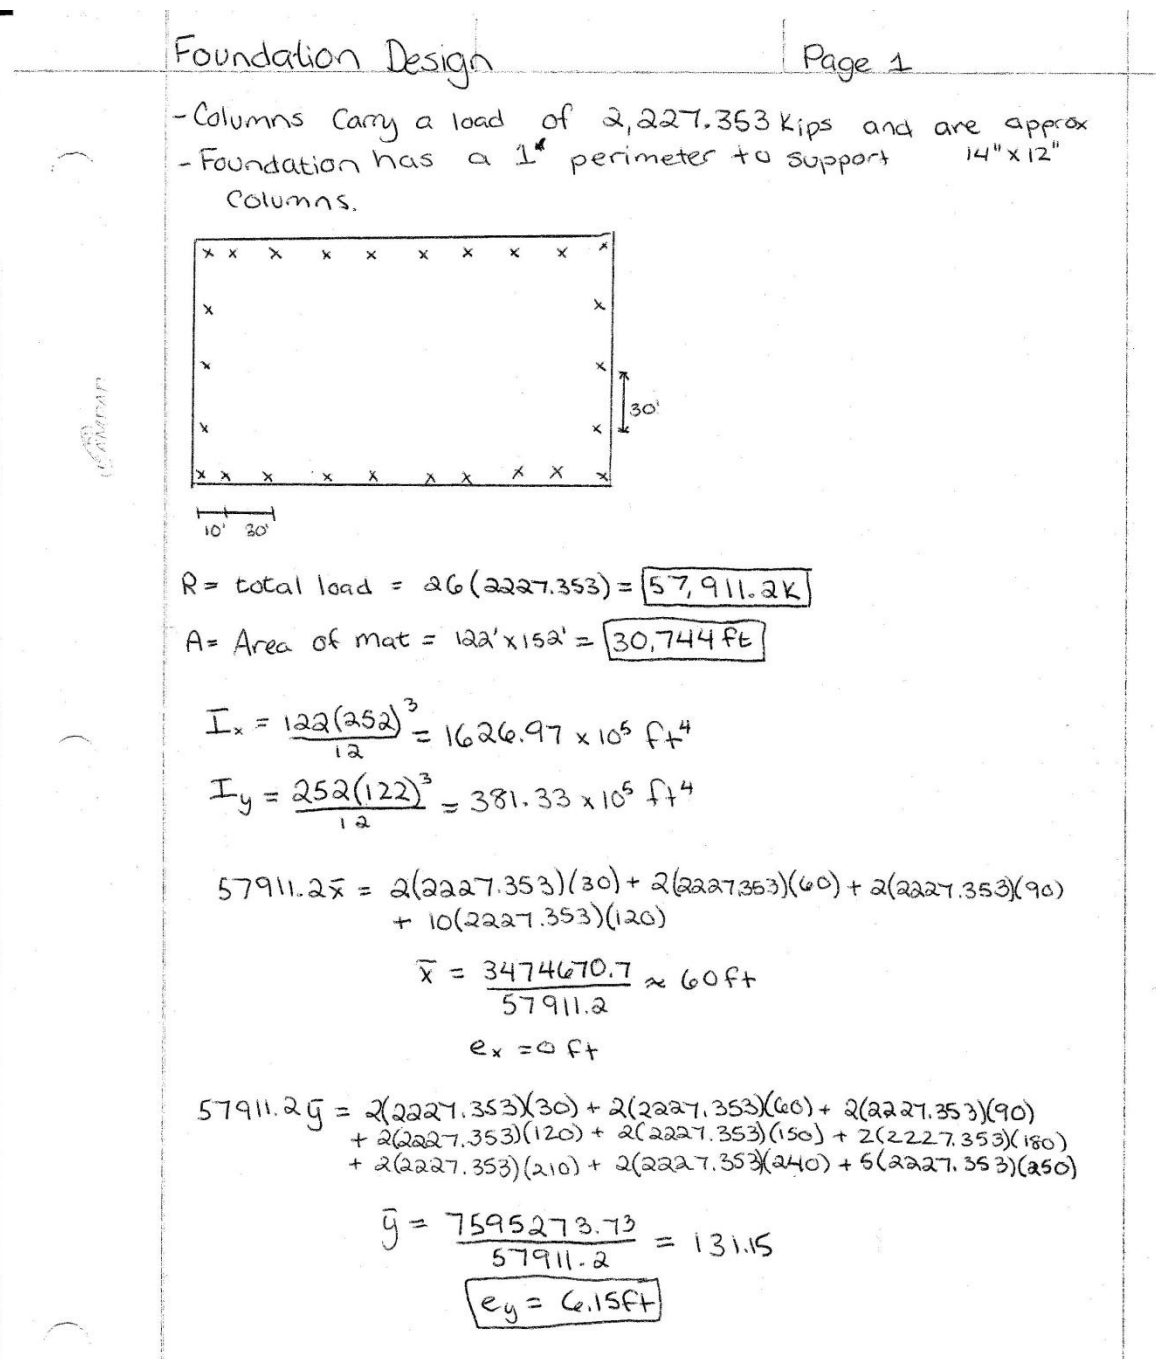 Foundation Design
Page 1
- Columns Carry a load of 2,227.353 Kips and are approx
14" x 12"
- Foundation has a 1' perimeter to support
Columns.
x x x x x x x x x x
x x
x x
30'
x x
x x x x x x x x x x
10' 30'
R = total load = 26(2227.353) = 57,911.2K
A = Area of mat = 122' x 152' = 30,744 ft
Ix = 122(252)³/12 = 1626.97 x 10⁵ ft⁴
Iy = 252(122)³/12 = 381.33 x 10⁵ ft⁴
57911.2x̄ = 2(2227.353)(30) + 2(2227.353)(60) + 2(2227.353)(90)
+ 10(2227.353)(120)
x̄ = 3474670.7/57911.2 ≈ 60ft
ex = 0 ft
57911.2ȳ = 2(2227.353)(30) + 2(2227.353)(60) + 2(2227.353)(90)
+ 2(2227.353)(120) + 2(2227.353)(150) + 2(2227.353)(180)
+ 2(2227.353)(210) + 2(2227.353)(240) + 5(2227.353)(250)
ȳ = 7595273.73/57911.2 = 131.15
ey = 6.15ft